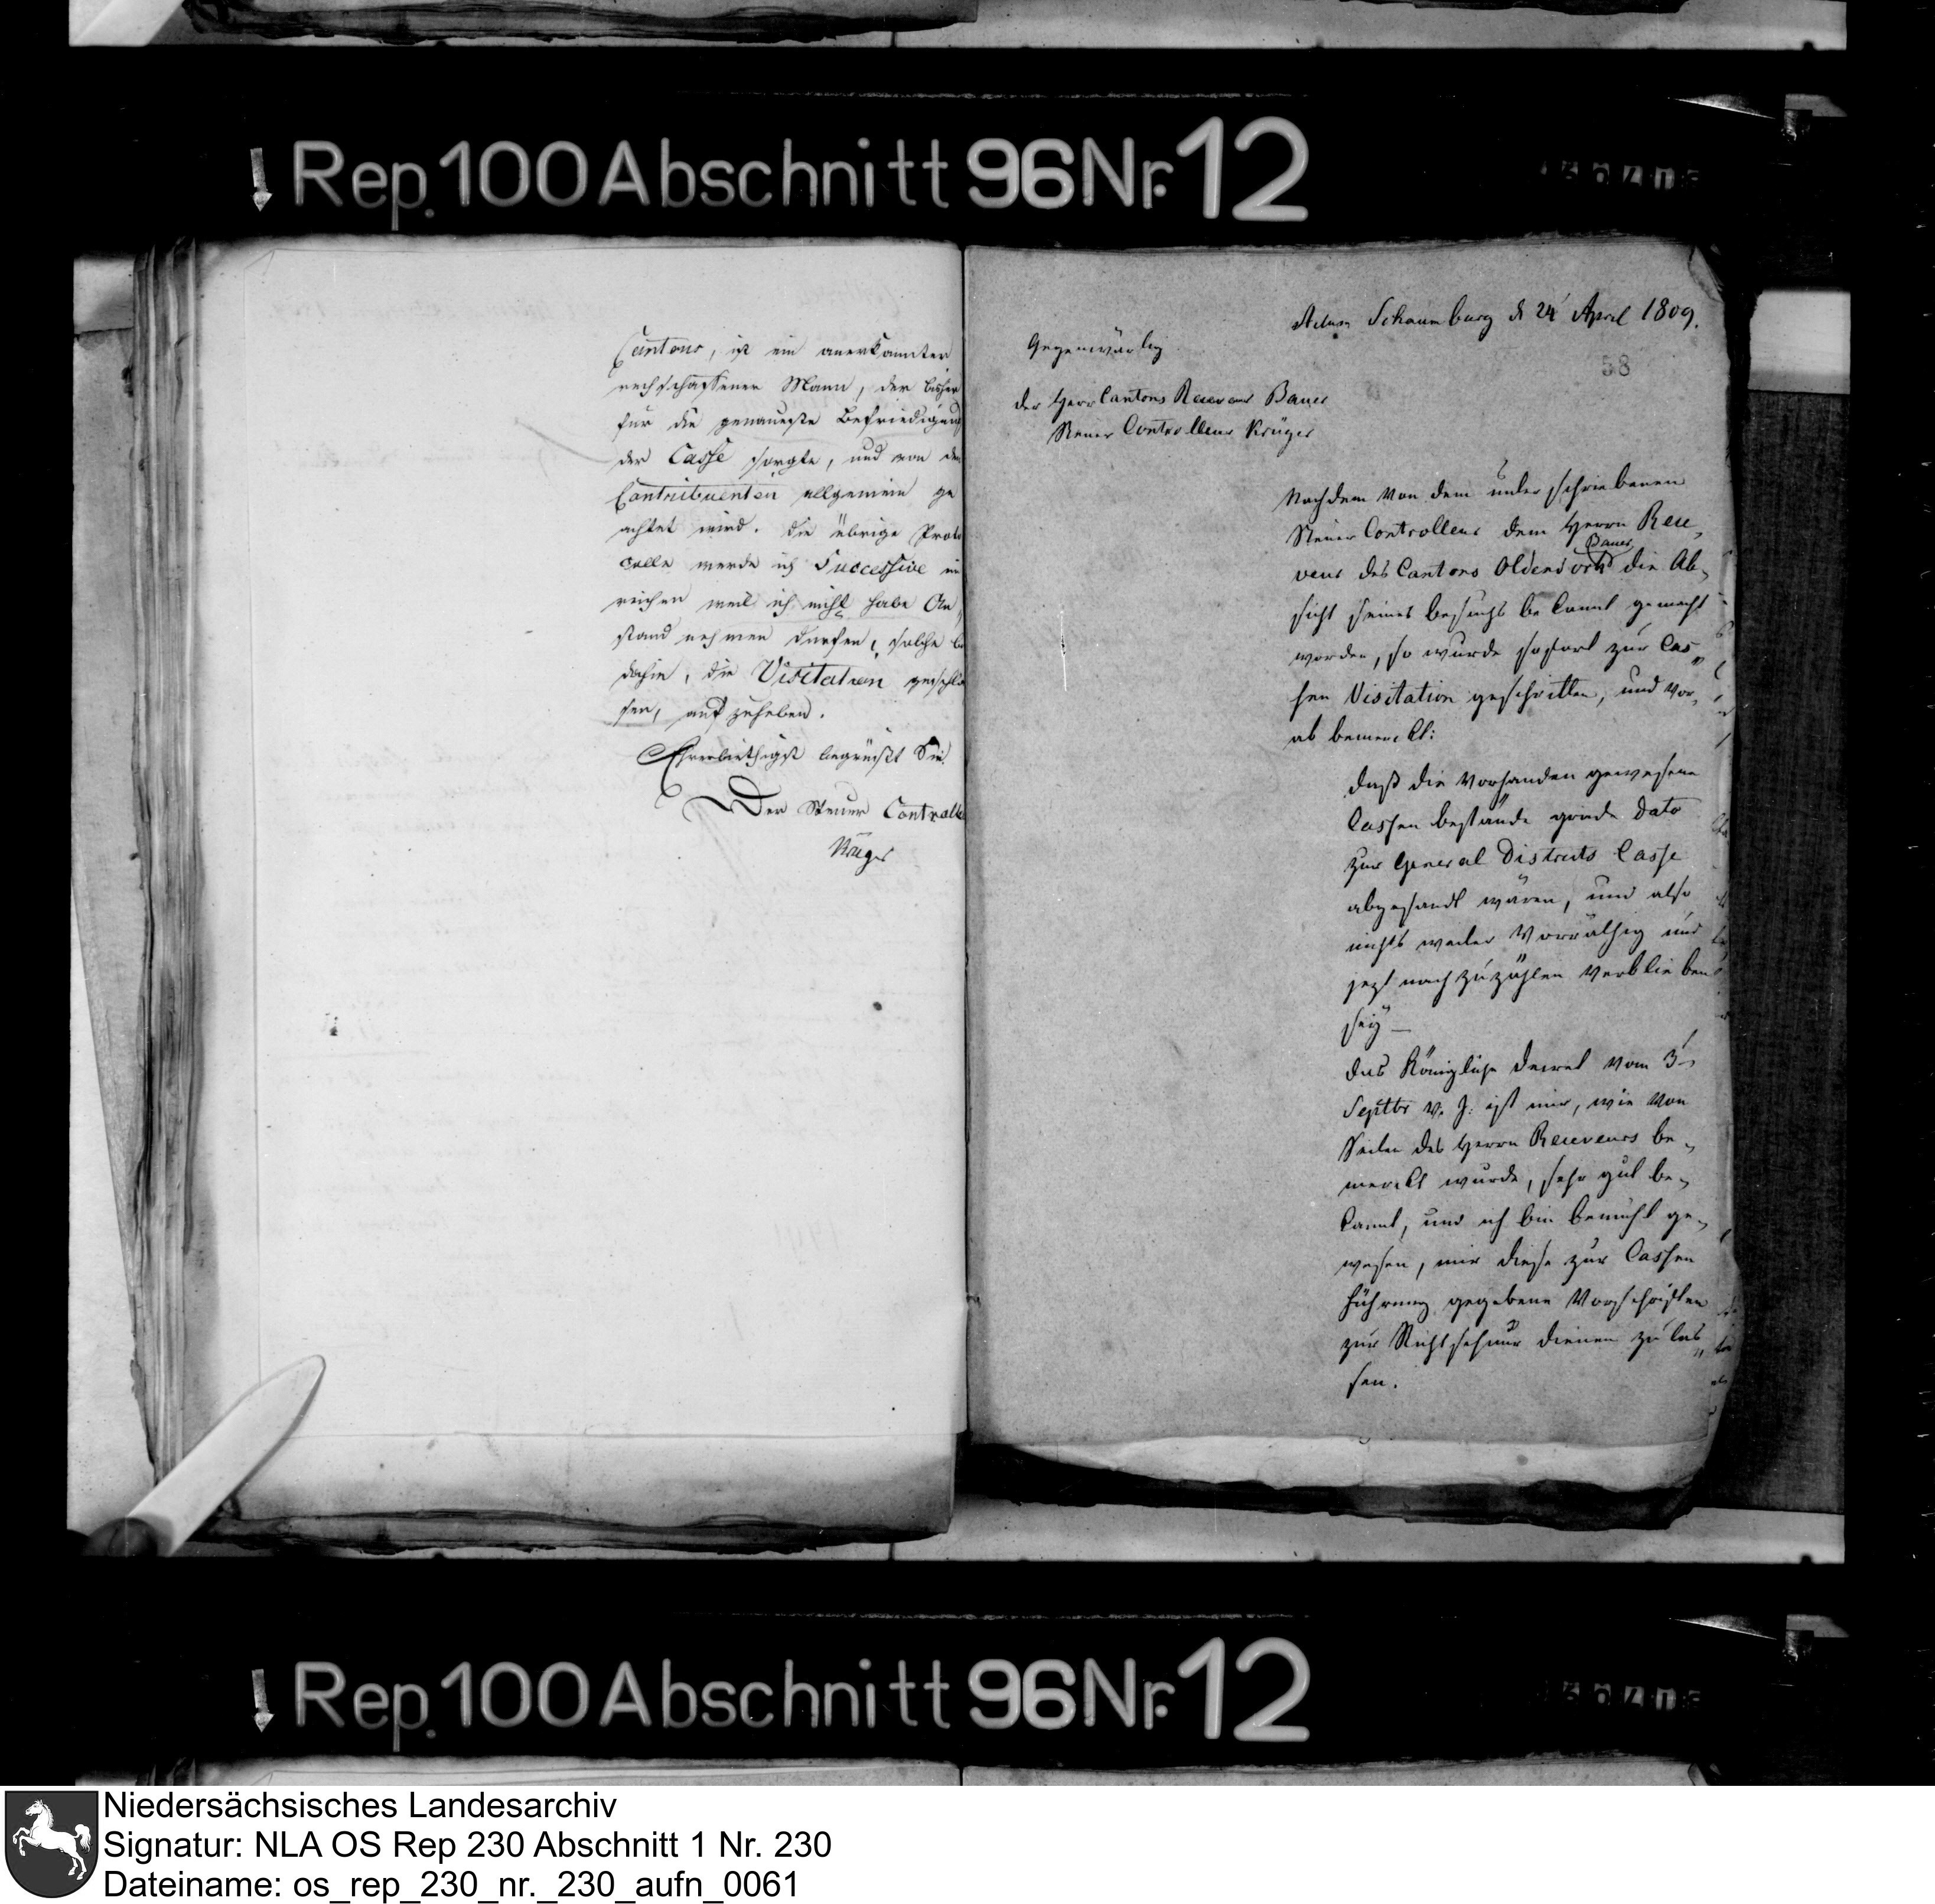 Rep. 100 Abschnitt 96 Nr. 12
Cantons, ist ein anerkannter
rechtschaffener Mann, der bisher
für die genaueste Befriedigung
der Casse sorgte, und von den
Contribuenten allgemein ge
achtet wird. Die übrige Proto
colle werde ich Successive ein
reichen weil ich nicht habe An
stand nehmen dürfen, solche bis
dahin, die Visitation geschlos
sen, aufzuheben.
Ehrerbietigst begrüßt Sie
Der Steuer Controlle
Krüger
Actum Schaumburg d 24 April 1809.
58
Gegenwärtig
der Herr Cantons Receveur Bauer
Steuer Controlleur Krüger
Nachdem von dem unterschriebenen
Steuer Controlleur dem Herrn Rece,
Bauer
veur des Cantons Oldendorf die Ab,
sicht seines Besuchs bekannt gemacht
worden, so wurde sofort zur Cas„
sen Visitation geschritten, und vor,
ab bemerckt:
daß die vorhanden gewesene
Cassen bestände grade dato
zur General Districts Casse
abgesandt wären, und also
nichts weiter vorräthig und
jezt nachzuzählen verblieben
sey —
Das Königliche Decret vom 3
Septbr v. J. ist mir, wie von
Seiten des Herrn Receveurs be,
merckt wurde, sehr gut be,
kannt, und ich bin bemüht ge,
wesen, mir diese zur Cassen
führung gegebene Vorschriften
zur Richtschnur dienen zu las„
sen.
Rep. 100 Abschnitt 96 Nr. 12
Niedersächsisches Landesarchiv
Signatur: NLA OS Rep 230 Abschnitt 1 Nr. 230
Dateiname: os_rep_230_nr._230_aufn_0061